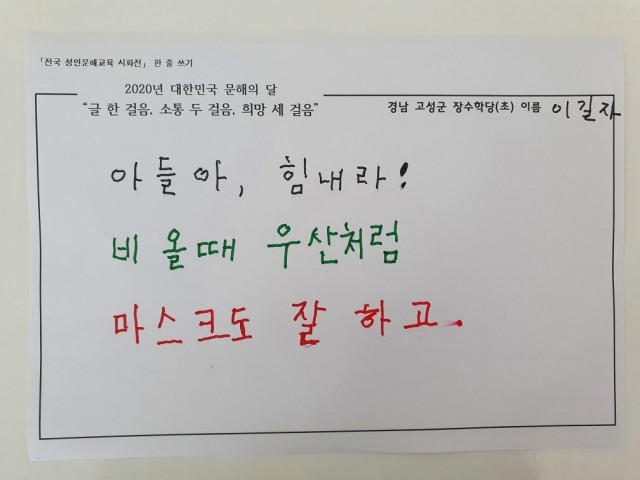 「전국 성인문해교육 시화전」 한 줄 쓰기
2020년 대한민국 문해의 달
“글 한 걸음, 소통 두 걸음, 희망 세 걸음”
경남 고성군 장수학당(초) 이름 이길자
아들아, 힘내라!
비 올때 우산처럼
마스크도 잘 하고.